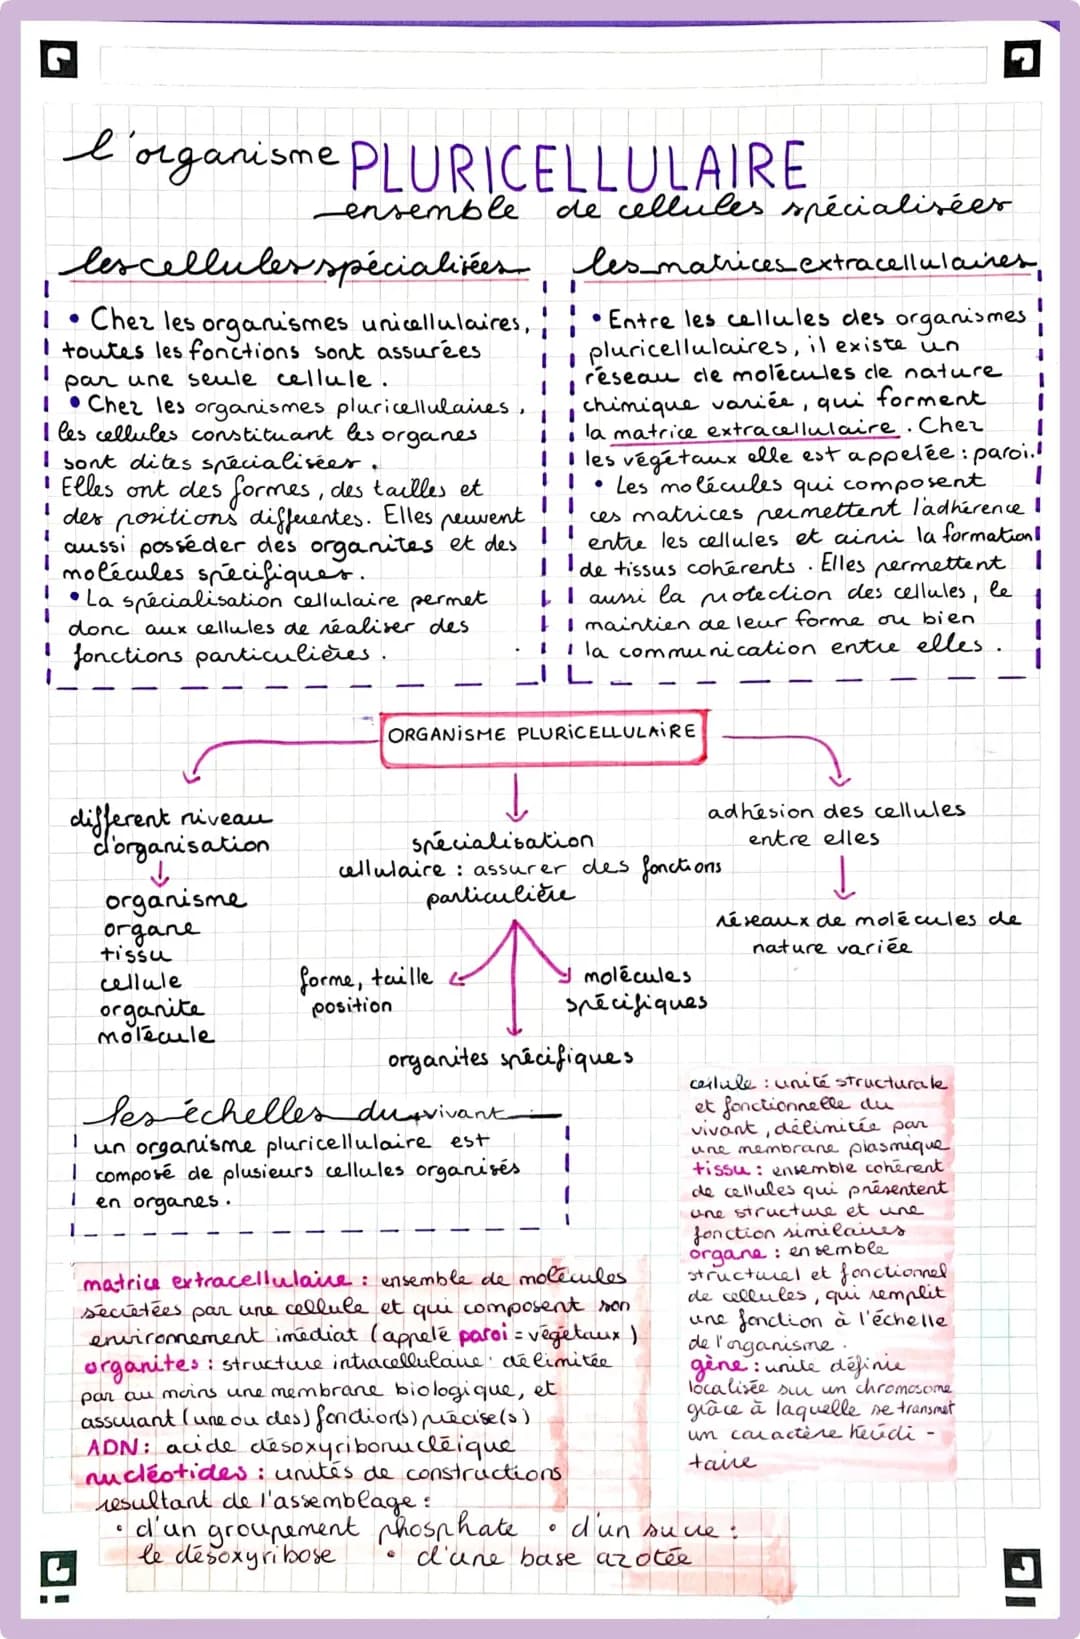 l'organisme PLURICELLULAIRE
ensemble de cellules spécialisées
les cellules spécialisées
• Chez les organismes unicellulaires,
toutes les fonctions sont assurées
par une seule cellule.
• Chez les organismes pluricellulaires,
les cellules constituant les organes
sont dites spécialisées.
Elles ont des formes, des tailles et
des positions différentes. Elles peuvent
aussi posséder des organites et des
molécules spécifiques.
• La spécialisation cellulaire permet
donc aux cellules de réaliser des
fonctions particulières.
les matrices extracellulaires
• Entre les cellules des organismes
pluricellulaires, il existe un
réseau de molécules de nature
chimique variée, qui forment
la matrice extracellulaire. Chez
les végétaux elle est appelée : paroi.
• Les molécules qui composent
ces matrices permettent l'adhérence
entre les cellules et ainsi la formation
de tissus cohérents. Elles permettent
aussi la protection des cellules, le
maintien de leur forme ou bien
la communication entre elles.
ORGANISME PLURICELLULAIRE
différent niveau
d'organisation
organisme
organe
tissu
cellule
organite
molécule
spécialisation
cellulaire : assurer des fonctions
particulière
forme, taille
position
organites spécifiques
molécules
spécifiques
adhésion des cellules
entre elles
réseaux de molécules de
nature variée
les échelles du vivant
un organisme pluricellulaire est
composé de plusieurs cellules organisés
en organes.
matrice extracellulaire : ensemble de molécules
sécrétées par une cellule et qui composent son
environnement imédiat (appelé paroi = végétaux)
organites : structure intracellulaire délimitée
par au moins une membrane biologique, et
assurant (une ou des) fonction(s) précise(s)
ADN : acide désoxyribonucléique
nucléotides : unités de constructions
résultant de l'assemblage :
• d'un groupement phosphate • d'un sucre :
le désoxyribose • d'une base azotée
cellule : unité structurale
et fonctionnelle du
vivant, délimitée par
une membrane plasmique
tissu : ensemble cohérent
de cellules qui présentent
une structure et une
fonction similaires
organe : ensemble
structurel et fonctionnel
de cellules, qui remplit
une fonction à l'échelle
de l'organisme.
gène : unité définie
localisée sur un chromosome
grâce à laquelle se transmet
un caractère hérédi -
taire